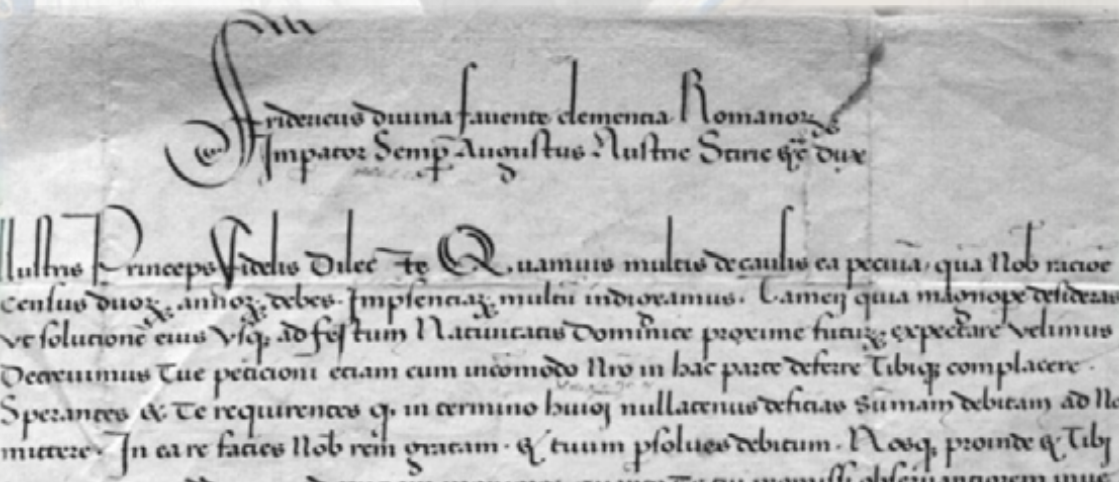 Fridericus diuina fauente clementia Romanoꝝ
Impator Semp Augustus Austrie Stirie ⁊c̄ dux
Illustris Princeps Fidelis Dilecte Quamuis multis de causis ea pecūia, qua Nob racōe
census duoꝝ annoꝝ debes. Impsenciaꝝ multū indigeamus. Tamen quia magnope desideras
vt solucionē eius vsqꝫ ad festum Natiuitatis Dominice proxime futuꝝ expectare velimus
Decreuimus Tue peticioni eciam cum incōmodo Nr̄o in hac parte deferre Tibiqꝫ complacere.
Sperantes & Te requirentes qꝫ in termino huioꝰ nullatenus deficias Sūmam debitam ad
mittere. In ea re facies Nob rem gratam. & tuum psolues debitum. Nosqꝫ proinde & Tibi